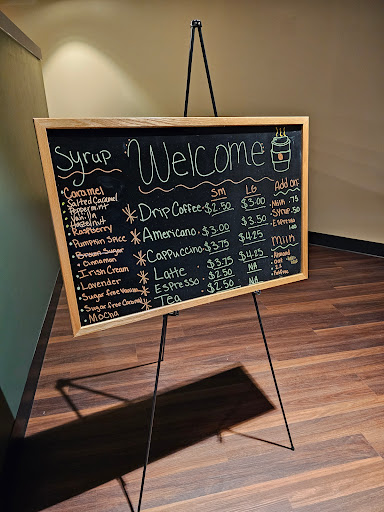 Syrup
Caramel
Salted Caramel
Peppermint
Vanilla
Hazelnut
Raspberry
Pumpkin Spice
Brown Sugar
Cinnamon
Irish Cream
Lavender
Sugar free Vanilla
Sugar free Caramel
Mocha
Welcome
Sm LG
Drip Coffee $2.50 $3.00
Americano $3.00 $3.50
Cappuccino $3.75 $4.25
Latte $3.75 $4.25
Espresso $2.50 NA
Tea $2.50 NA
Add on:
.75
Syrup .50
Espresso
Milk
Almond
Oat